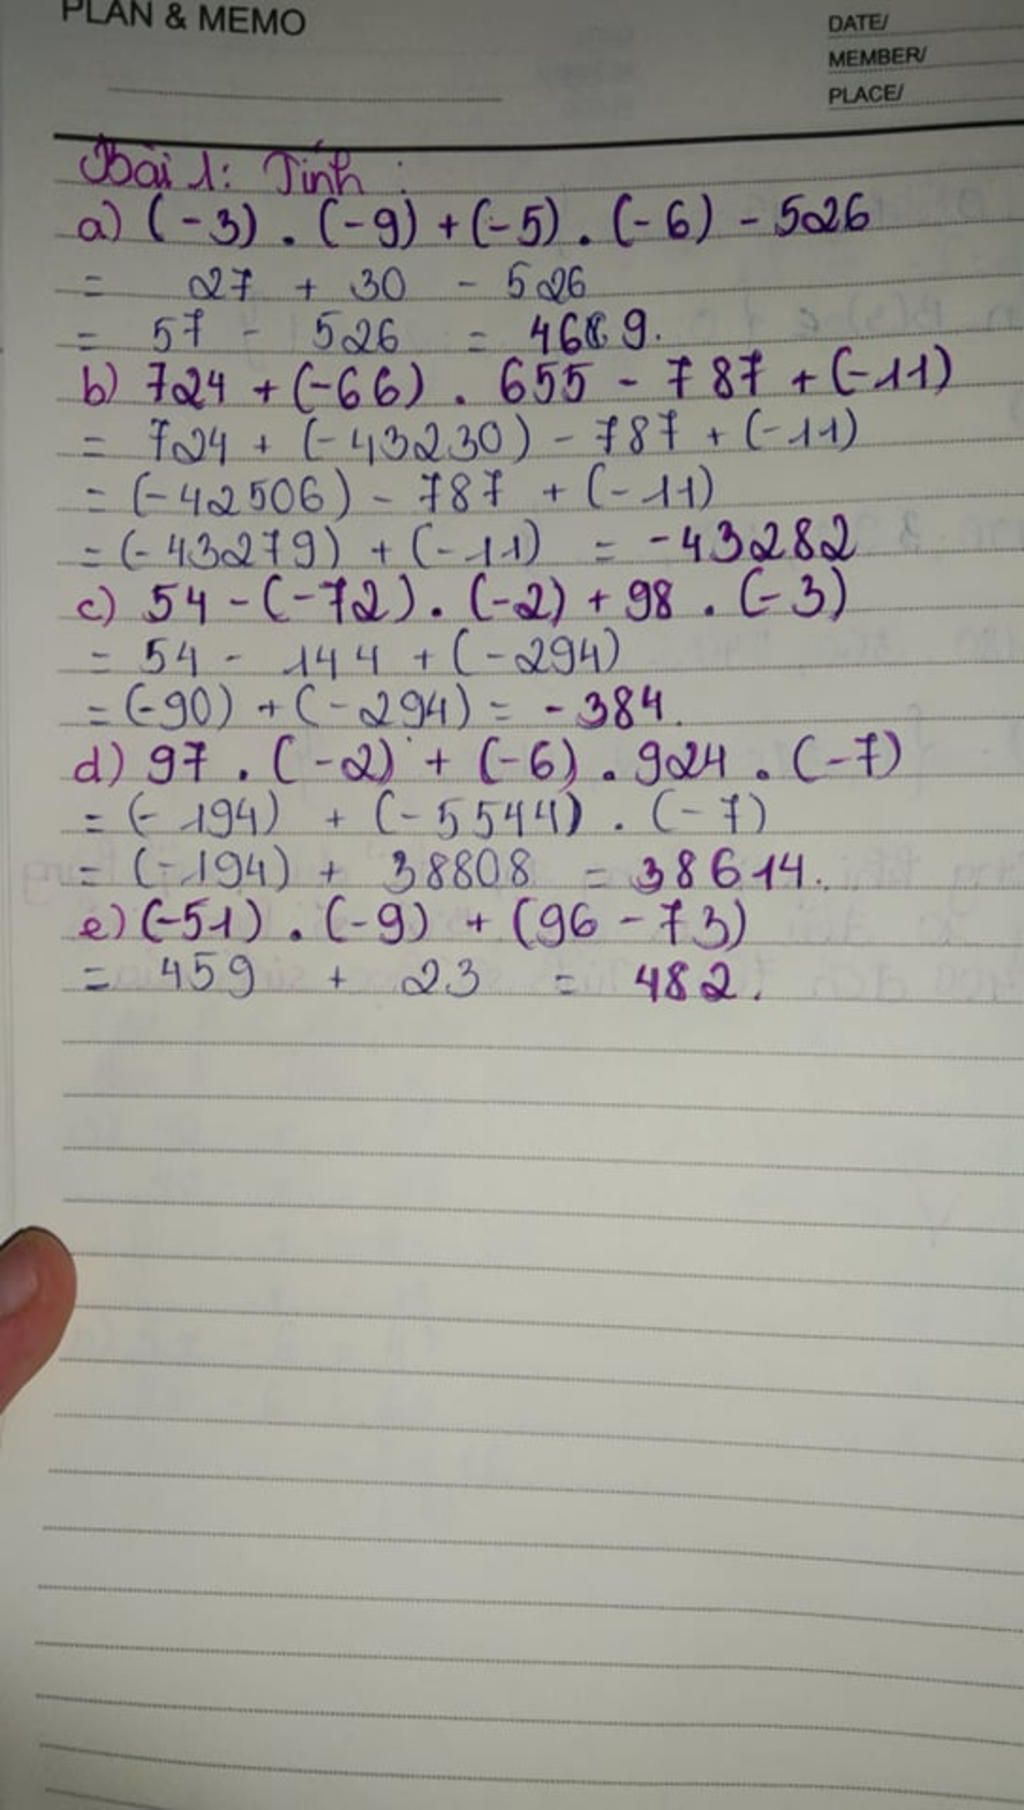 PLAN & MEMO
DATE/
MEMBER/
PLACE/
Bài 1: Tính :
a) (-3) . (-9) + (-5) . (-6) - 526
= 27 + 30 - 526
= 57 - 526 = 469.
b) 724 + (-66) . 655 - 787 + (-11)
= 724 + (-43230) - 787 + (-11)
= (-42506) - 787 + (-11)
= (-43279) + (-11) = -43282
c) 54 - (-72) . (-2) + 98 . (-3)
= 54 - 144 + (-294)
= (-90) + (-294) = -384.
d) 97 . (-2) + (-6) . 924 . (-7)
= (-194) + (-5544) . (-7)
= (-194) + 38808 = 38614.
e) (-51) . (-9) + (96 - 73)
= 459 + 23 = 482.